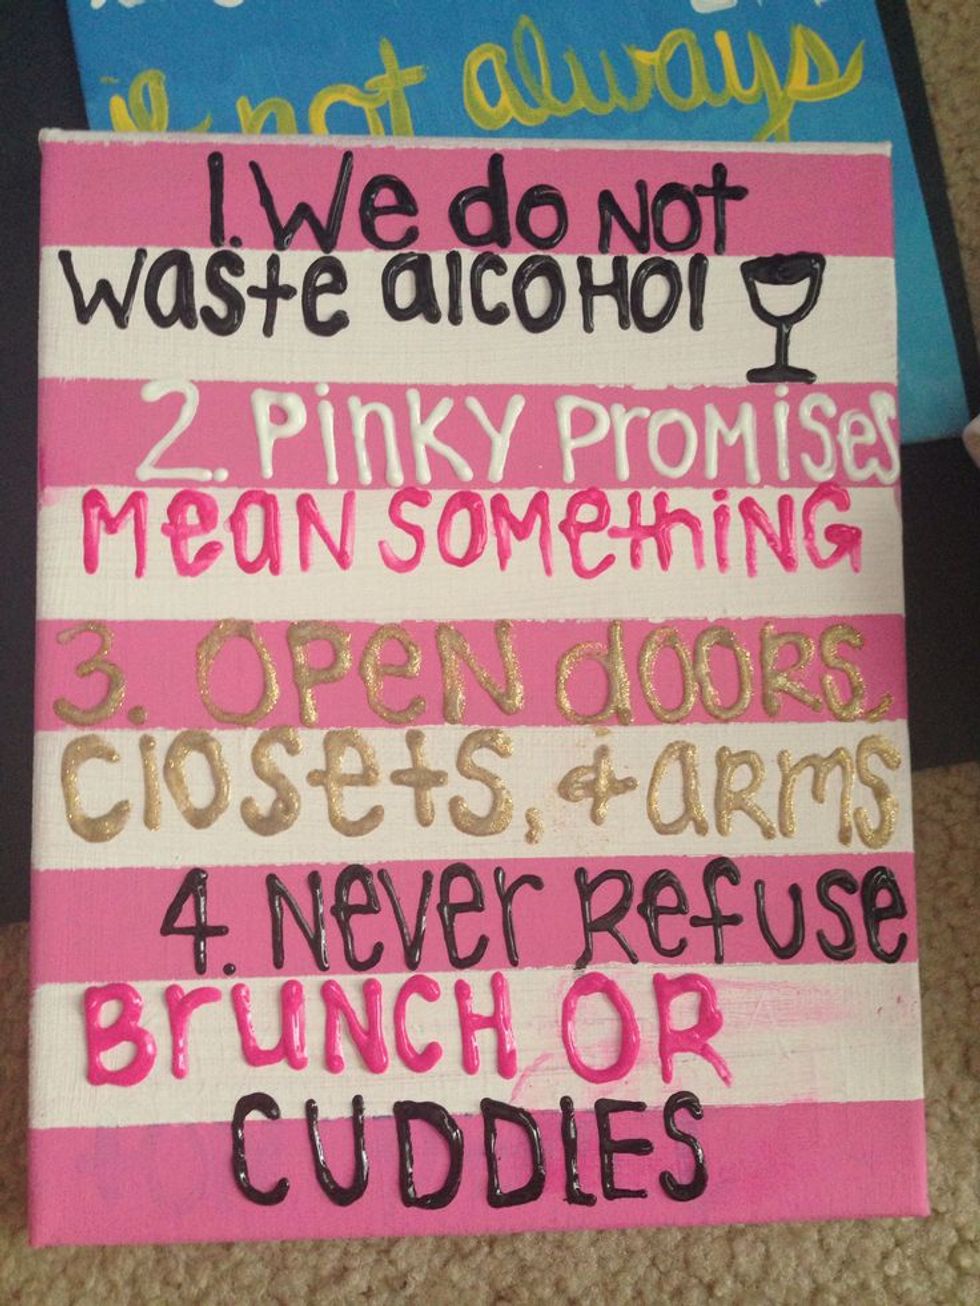 is not always
1. We do NOT
waste alcoHol
2. PiNKY PROMiSes
MeaN SOMethiNG
3. OPeN dOORS,
Closets, & aRms
4. Never Refuse
BruNCH OR
CUDDIES